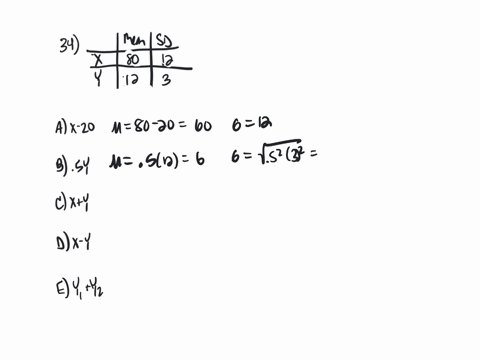 34) Mean SD
X 80 12
Y 12 3
A) X-20 μ = 80-20 = 60 σ = 12
B) .5Y μ = .5(12) = 6 σ = √.5²(3)² =
C) X+Y
D) X-Y
E) Y₁+Y₂